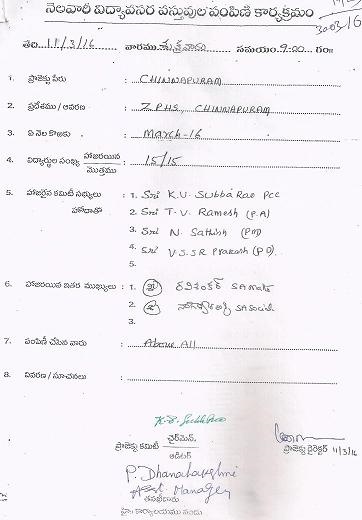 నెలవారీ విద్యావసర వస్తువుల పంపిణి కార్యక్రమం
30-03/16
తేది. 11/3/16 వారము. శుక్రవారం సమయం. 9:00 గం॥
1. ప్రాజెక్టు పేరు : CHINNAPURAM
2. ప్రదేశము / ఆవరణ : Z.P.H.S, CHINNAPURAM
3. ఏ నెల కొఱకు : March-16
4. విద్యార్థుల సంఖ్య హాజరయిన / మొత్తము : 15/15
5. హాజరైన కమిటీ సభ్యులు : 1. Sri K.V. Subba Rao PCC
హోదాతో 2. Sri T.V. Ramesh (P.A)
3. Sri N. Sathish (PM)
4. Sri V.S.SR Prakash (PD)
5.
6. హాజరయిన ఇతర ముఖ్యులు : 1. రవిశంకర్ SA Maths
2. SA Social
3.
7. పంపిణీ చేసిన వారు : Above All
8. వివరణ / సూచనలు :
ప్రాజెక్టు కమిటీ ఛైర్మెన్ / ఆడిటర్
ప్రాజెక్టు డైరెక్టర్ 11/3/16
P. Dhanalakshmi
Asst. Manager